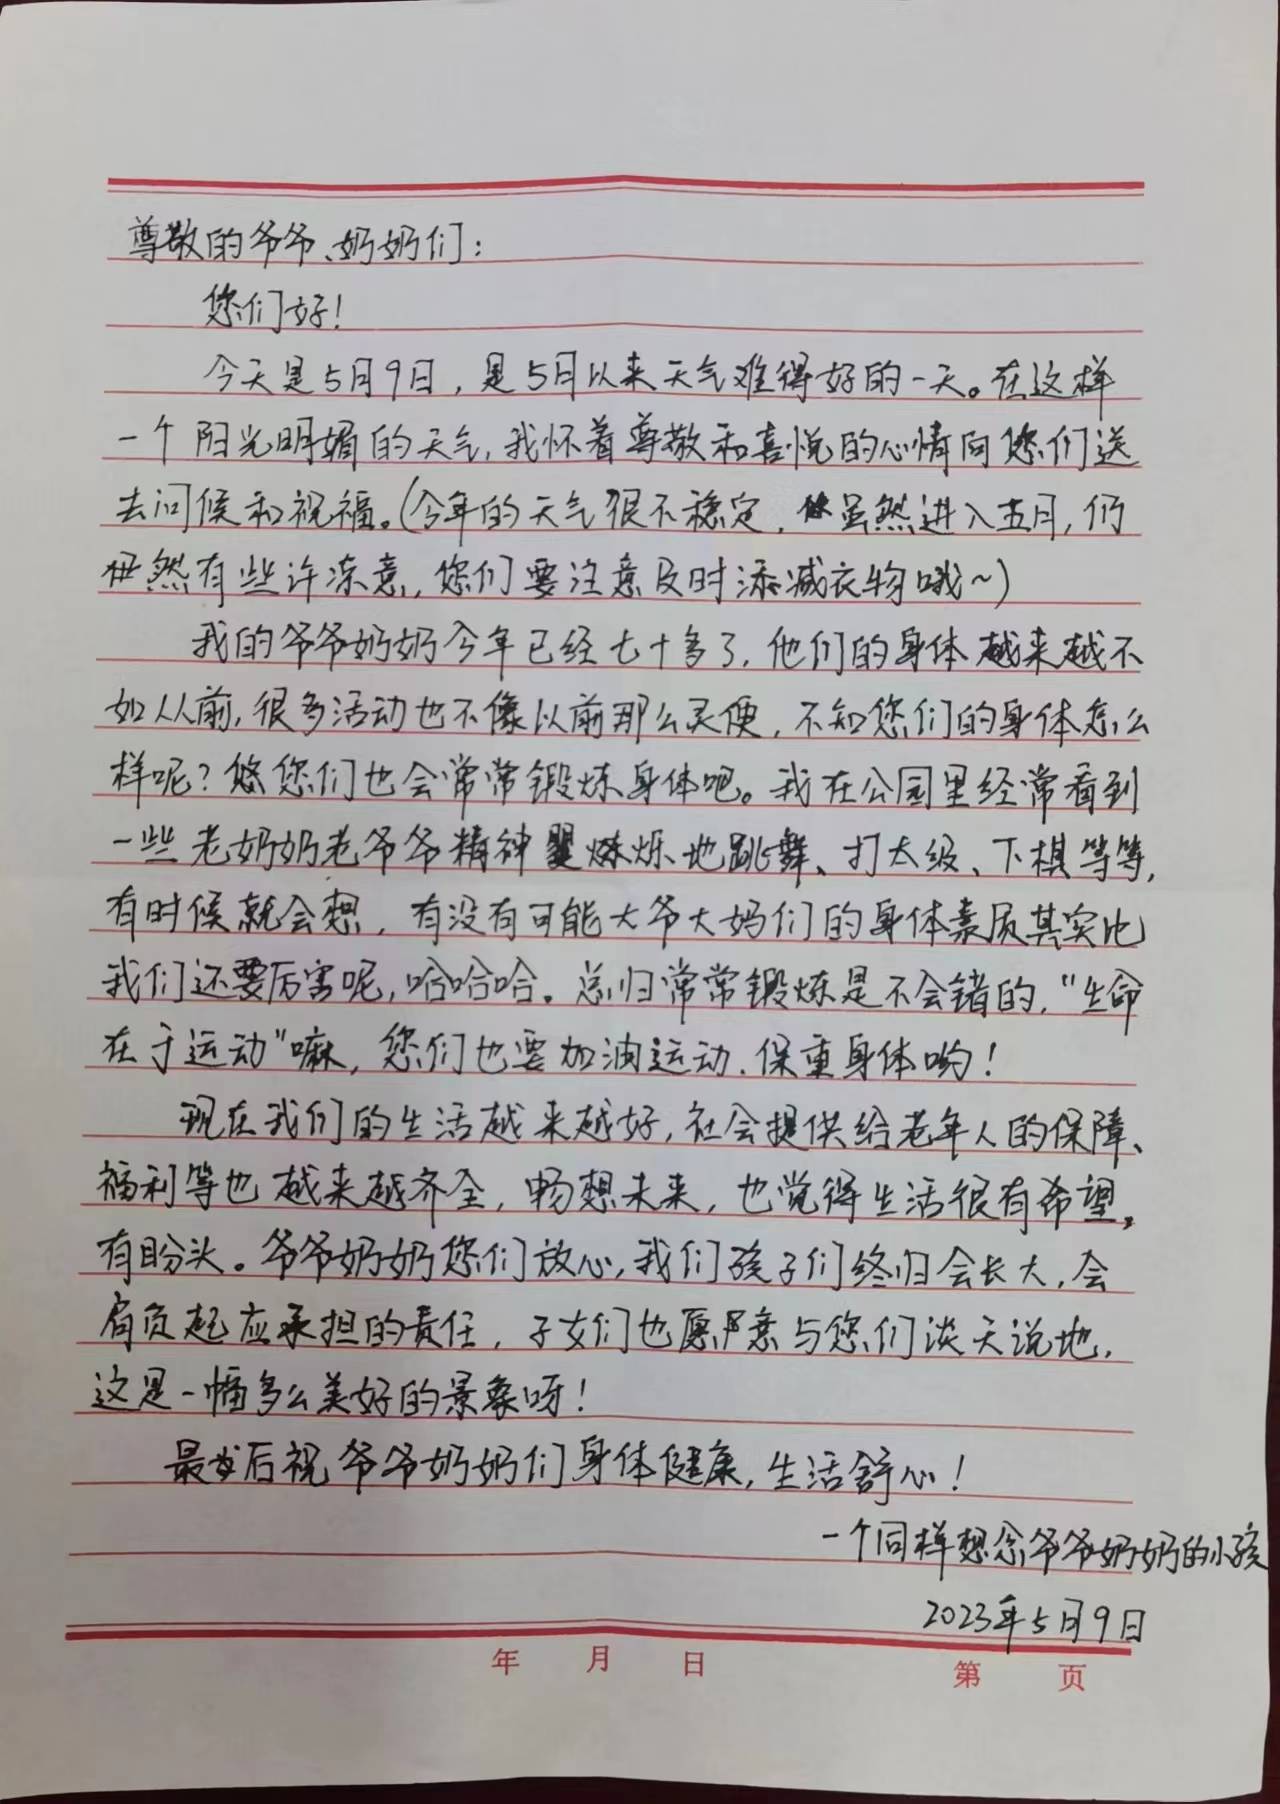 尊敬的爷爷、奶奶们：
您们好！
今天是5月9日，是5月以来天气难得好的一天。在这样
一个阳光明媚的天气，我怀着尊敬和喜悦的心情向您们送
去问候和祝福。（今年的天气很不稳定，虽然进入五月，仍
然有些许凉意，您们要注意及时添减衣物哦~）
我的爷爷奶奶今年已经七十多了，他们的身体越来越不
如从前，很多活动也不像以前那么灵便，不知您们的身体怎么
样呢？您们也会常常锻炼身体吧。我在公园里经常看到
一些老奶奶老爷爷精神烁地跳舞、打太级、下棋等等，
有时候就会想，有没有可能大爷大妈们的身体素质其实比
我们还要厉害呢，哈哈哈。总归常常锻炼是不会错的，“生命
在于运动”嘛，您们也要加油运动，保重身体哟！
现在我们的生活越来越好，社会提供给老年人的保障、
福利等也越来越齐全，畅想未来，也觉得生活很有希望，
有盼头。爷爷奶奶您们放心，我们孩子们终归会长大，会
肩负起应承担的责任，子女们也愿意与您们谈天说地，
这是一幅多么美好的景象呀！
最后祝爷爷奶奶们身体健康，生活舒心！
一个同样想念爷爷奶奶的小孩
2023年5月9日
年 月 日 第 页